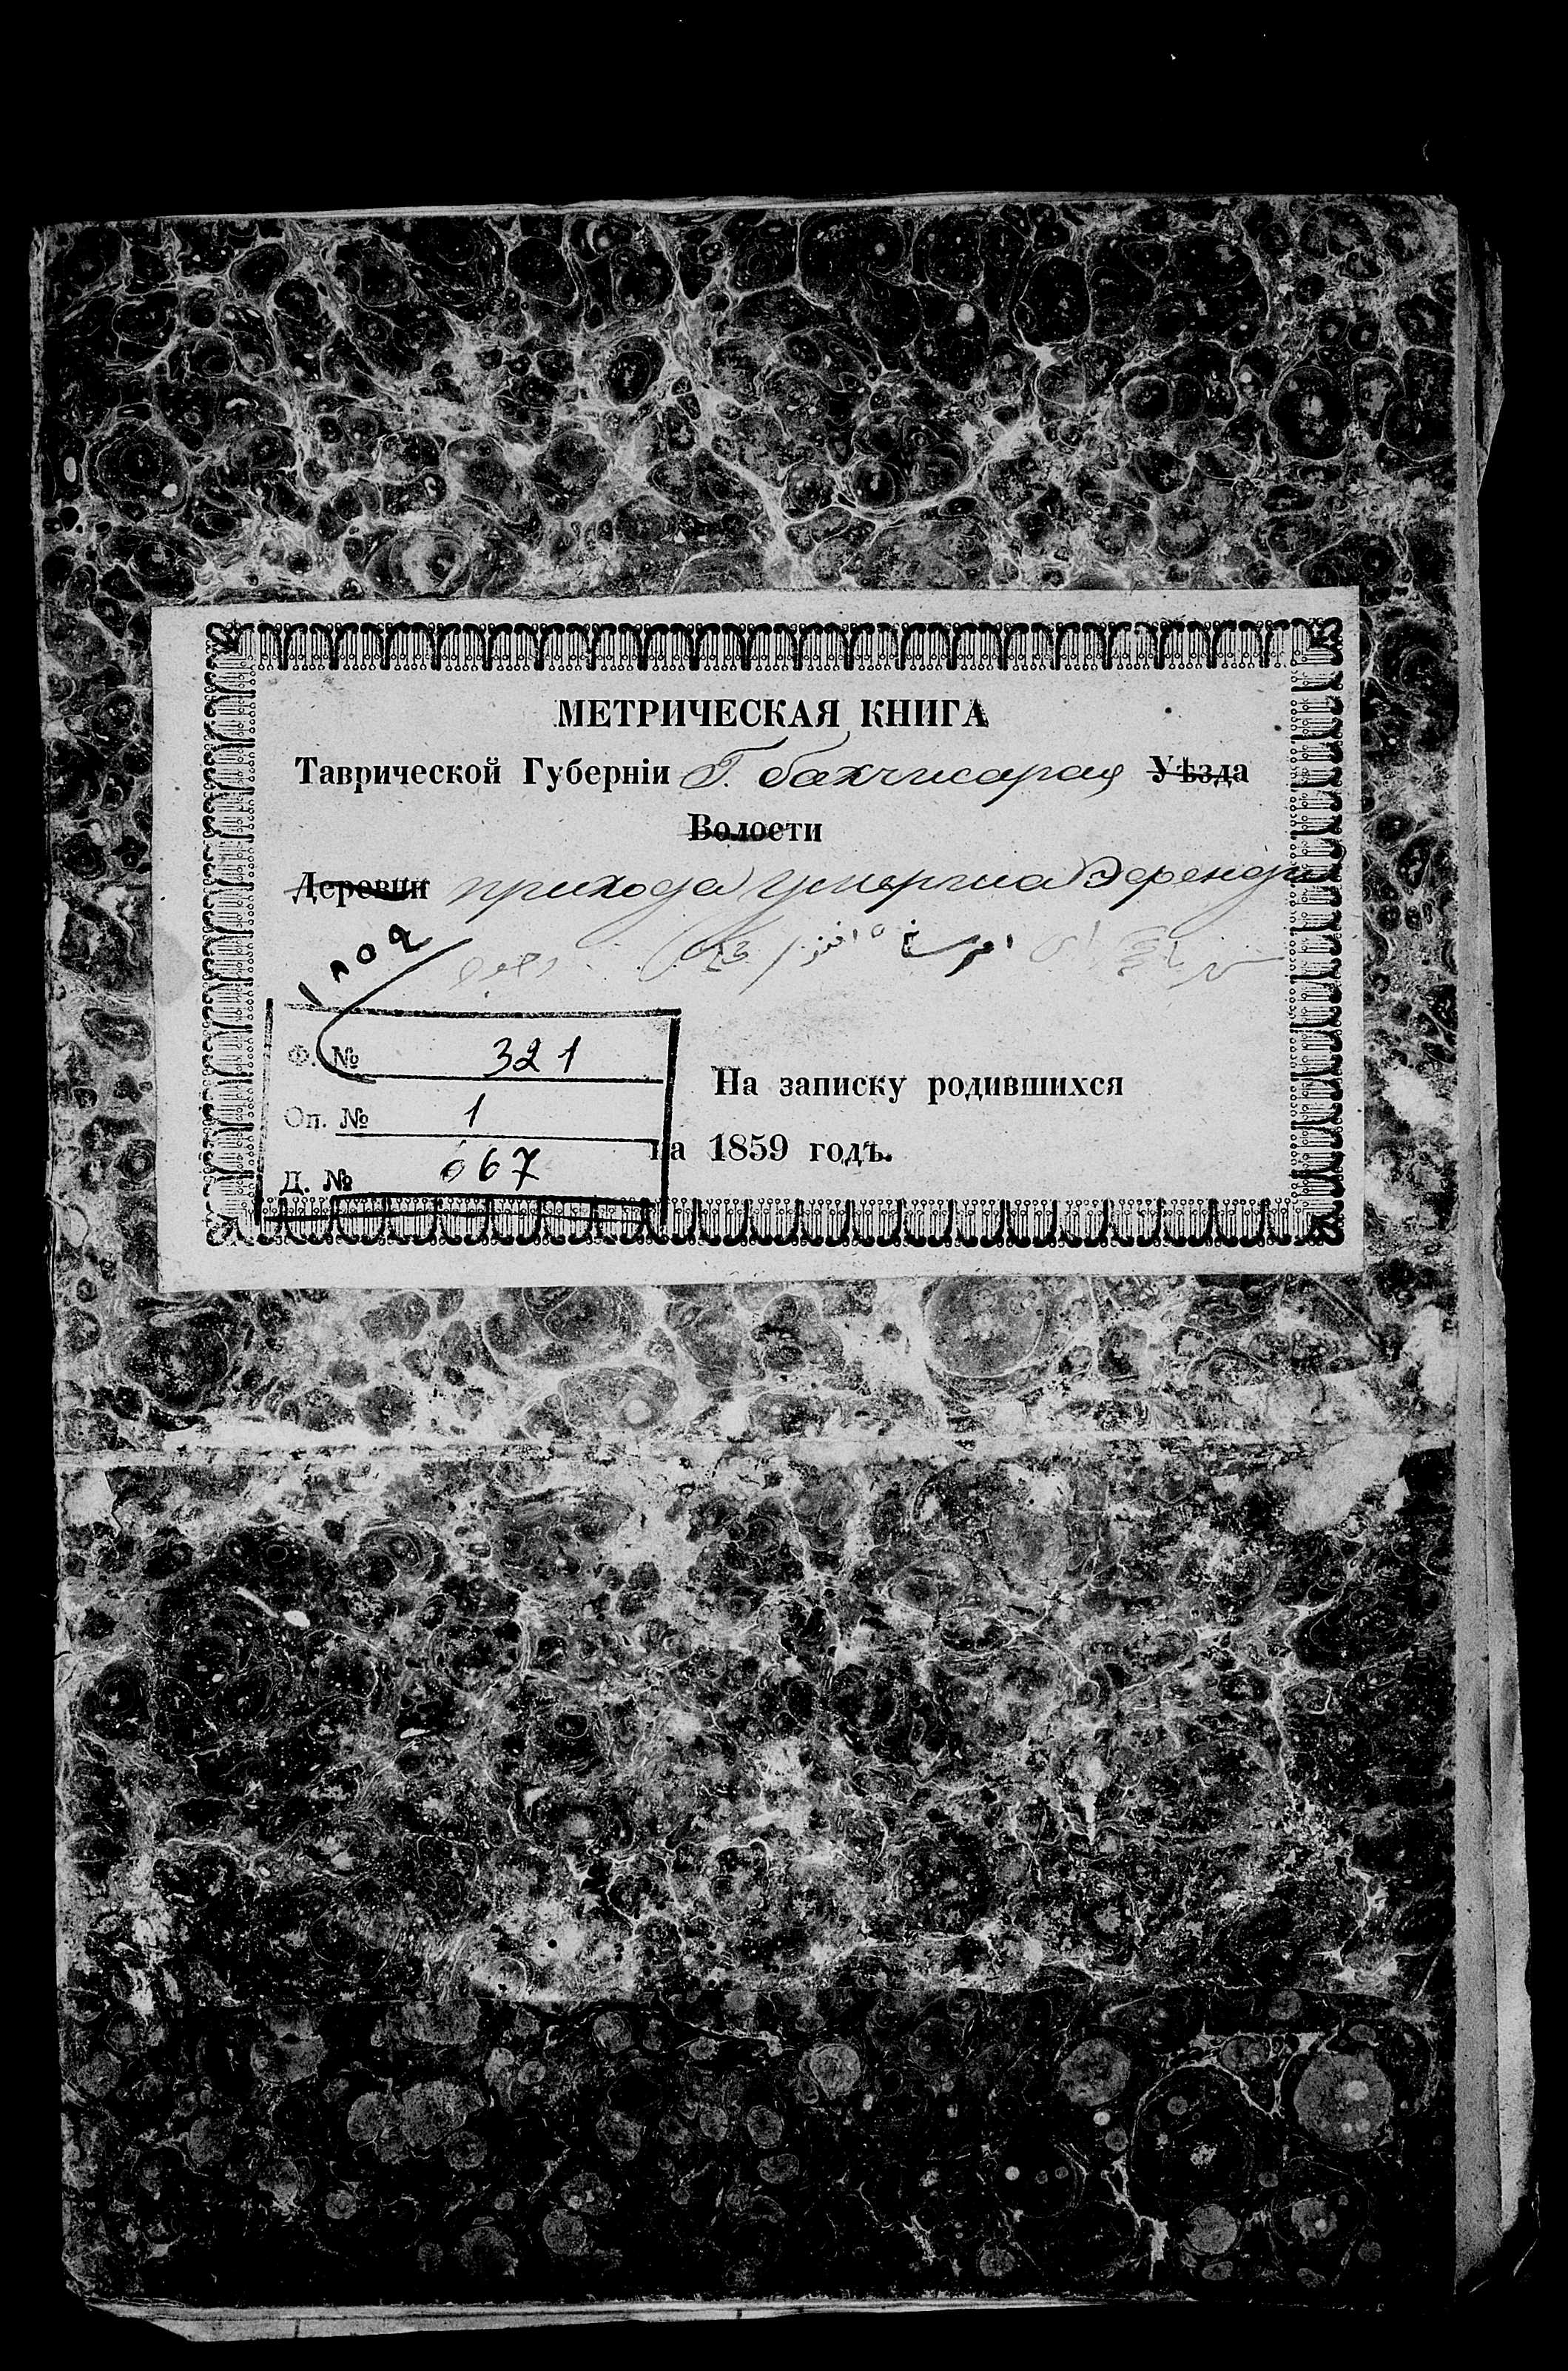 МЕТРИЧЕСКАЯ КНИГА
Таврической Губерніи Г. бахчисарая Уѣзда
Волости
Деревни прихода Эфенди
١٨٥٩
Ф. № 321
Оп. № 1
Д. № 67
На записку родившихся
на 1859 годъ.